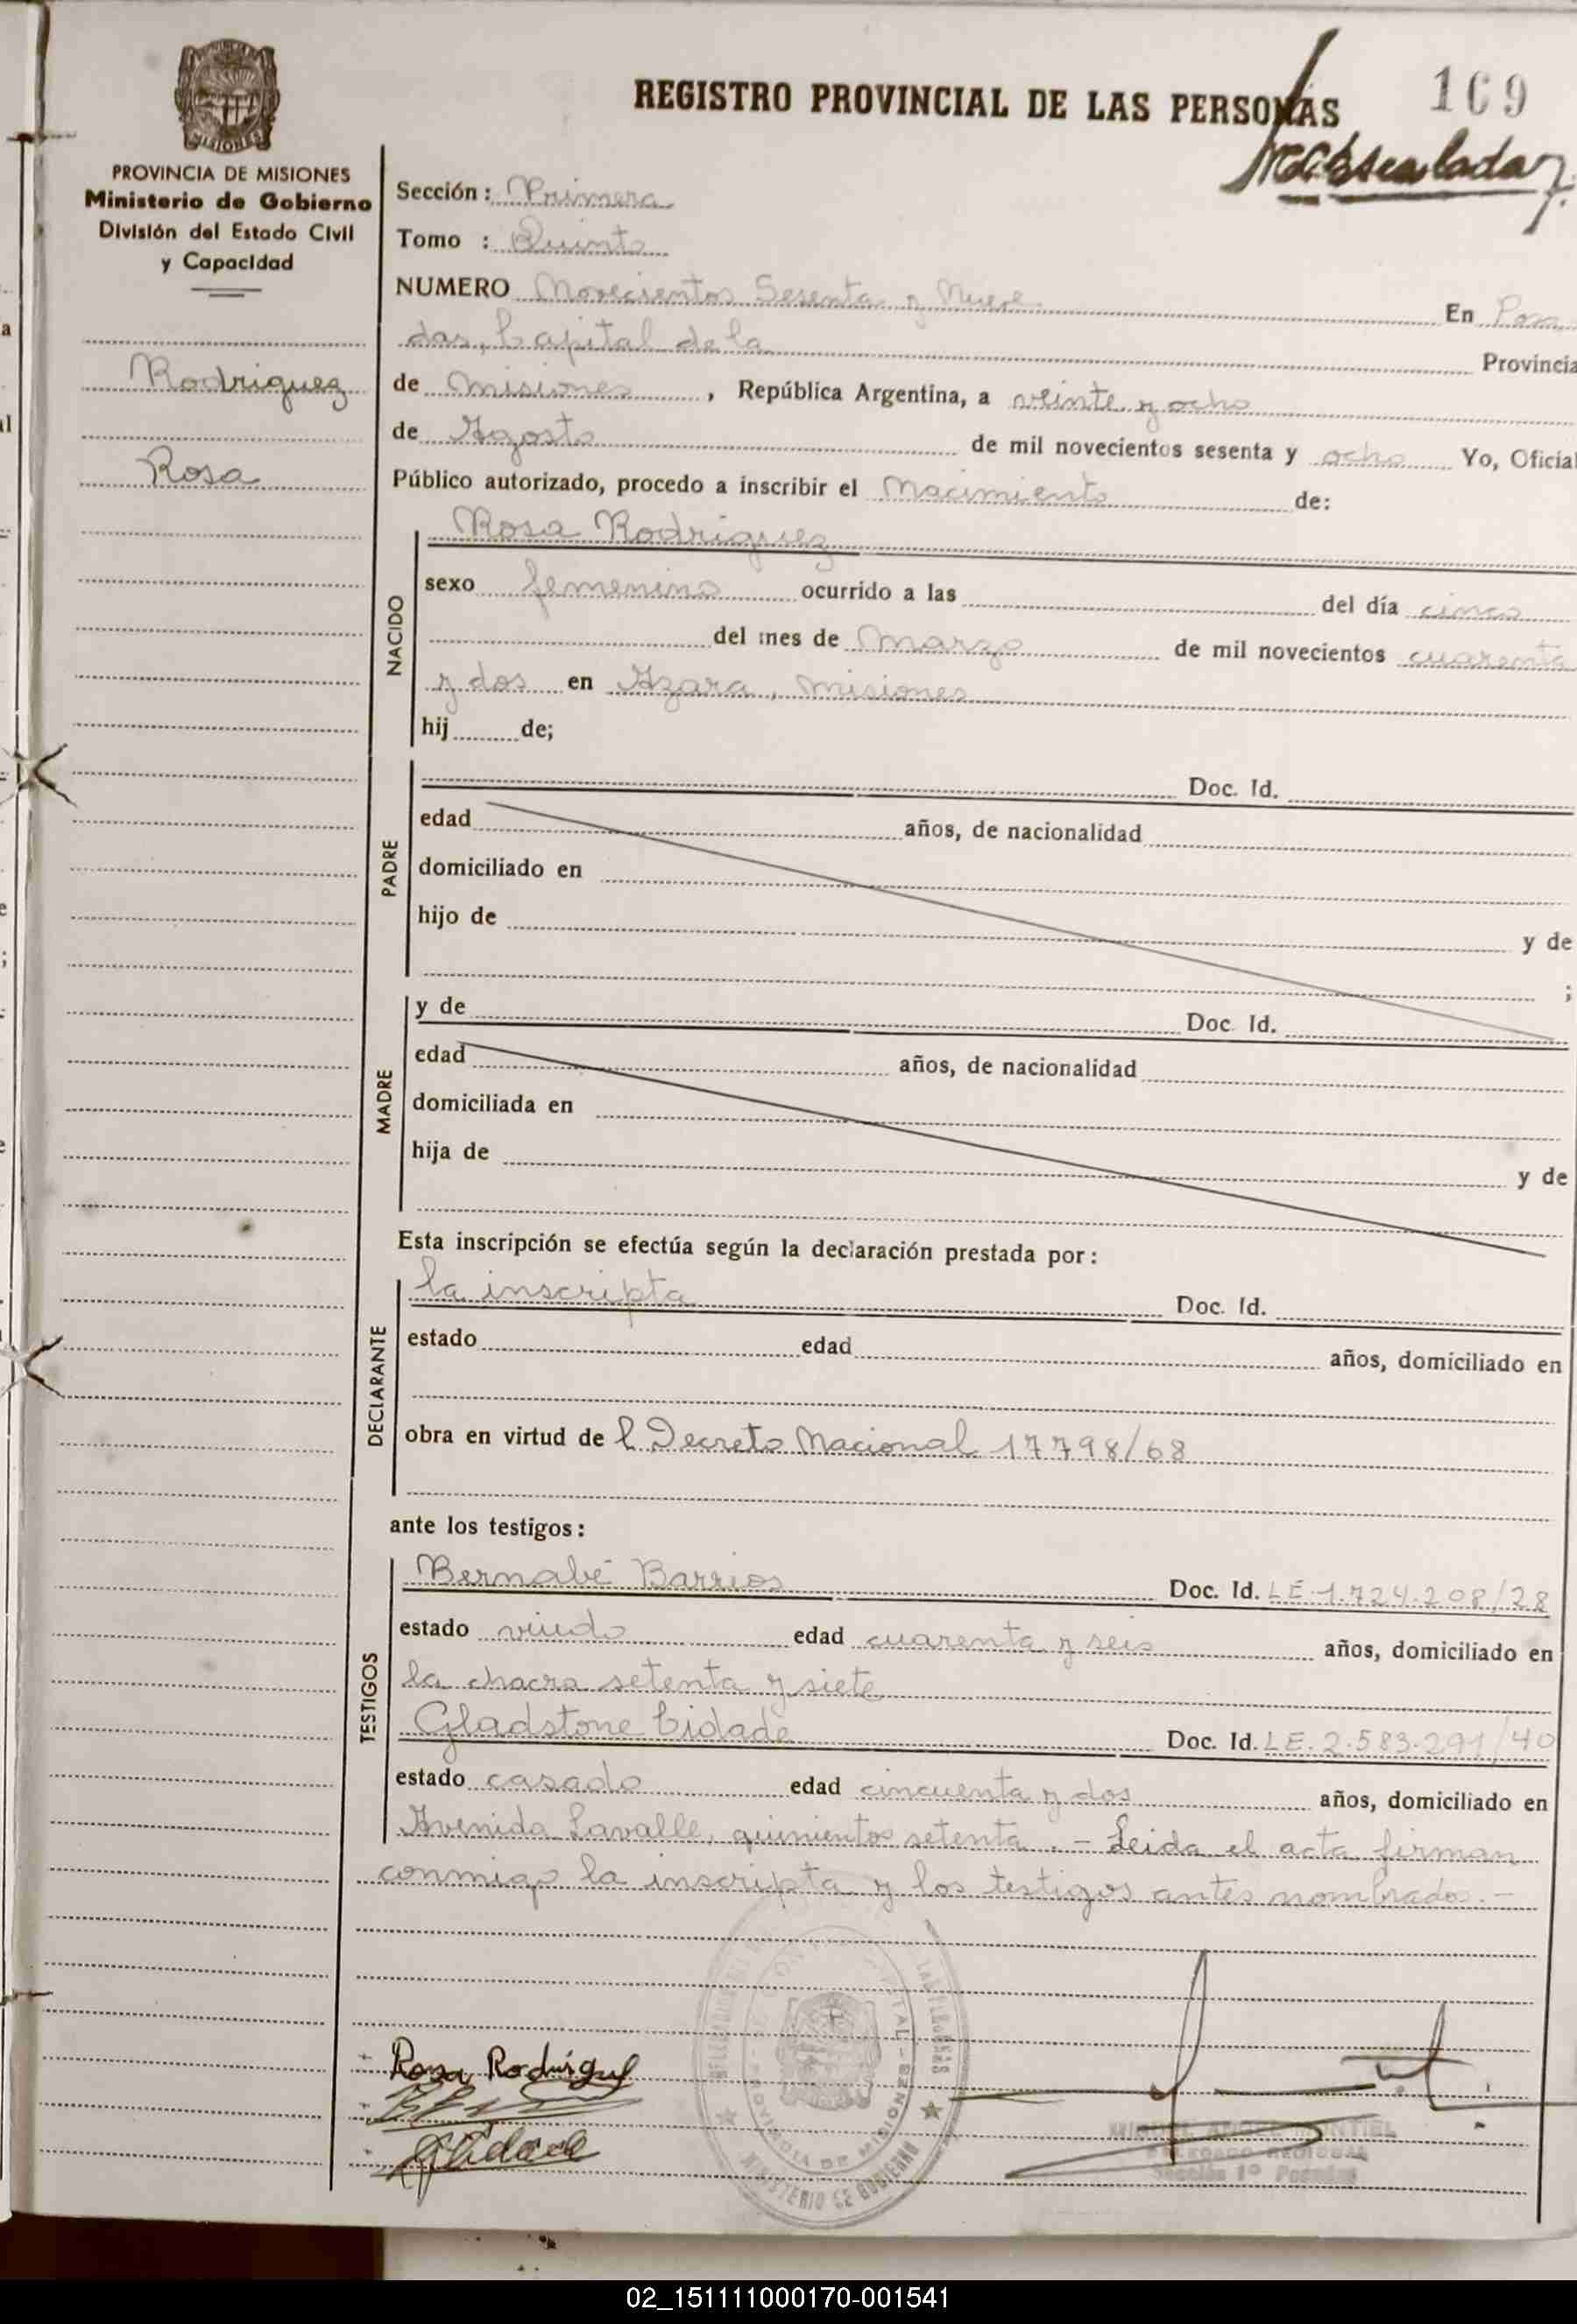 REGISTRO PROVINCIAL DE LAS PERSONAS
169
PROVINCIA DE MISIONES
Ministerio de Gobierno
División del Estado Civil
y Capacidad
Rodriguez
Rosa
Sección: Primera
Tomo : Quinto
NUMERO Novecientos Sesenta y Nueve En Posa
das, Capital de la Provincia
de Misiones, República Argentina, a veinte y ocho
de Agosto de mil novecientos sesenta y ocho Yo, Oficial
Público autorizado, procedo a inscribir el Nacimiento de:
NACIDO
Rosa Rodriguez
sexo femenino ocurrido a las del día cinco
del mes de Marzo de mil novecientos cuarenta
y dos en Azara, Misiones
hij de;
PADRE
Doc. Id.
edad años, de nacionalidad
domiciliado en
hijo de y de
;
MADRE
y de Doc. Id.
edad años, de nacionalidad
domiciliada en
hija de y de
Esta inscripción se efectúa según la declaración prestada por:
DECLARANTE
la inscripta Doc. Id.
estado edad años, domiciliado en
obra en virtud de l Decreto Nacional 17798/68
ante los testigos:
TESTIGOS
Bernabé Barrios Doc. Id. LE.1.724.208/28
estado viudo edad cuarenta y seis años, domiciliado en
la chacra setenta y siete
Gladstone Cidade Doc. Id. LE.2.583.291/40
estado casado edad cincuenta y dos años, domiciliado en
Avenida Lavalle, quinientos setenta.- Leida el acta firman
conmigo la inscripta y los testigos antes nombrados.-
Rosa Rodriguez
MINISTERIO DE GOBIERNO
PROVINCIA DE MISIONES
MIGUEL ANGEL MONTIEL
DELEGADO REGIONAL
Sección 1º Posadas
02_151111000170-001541